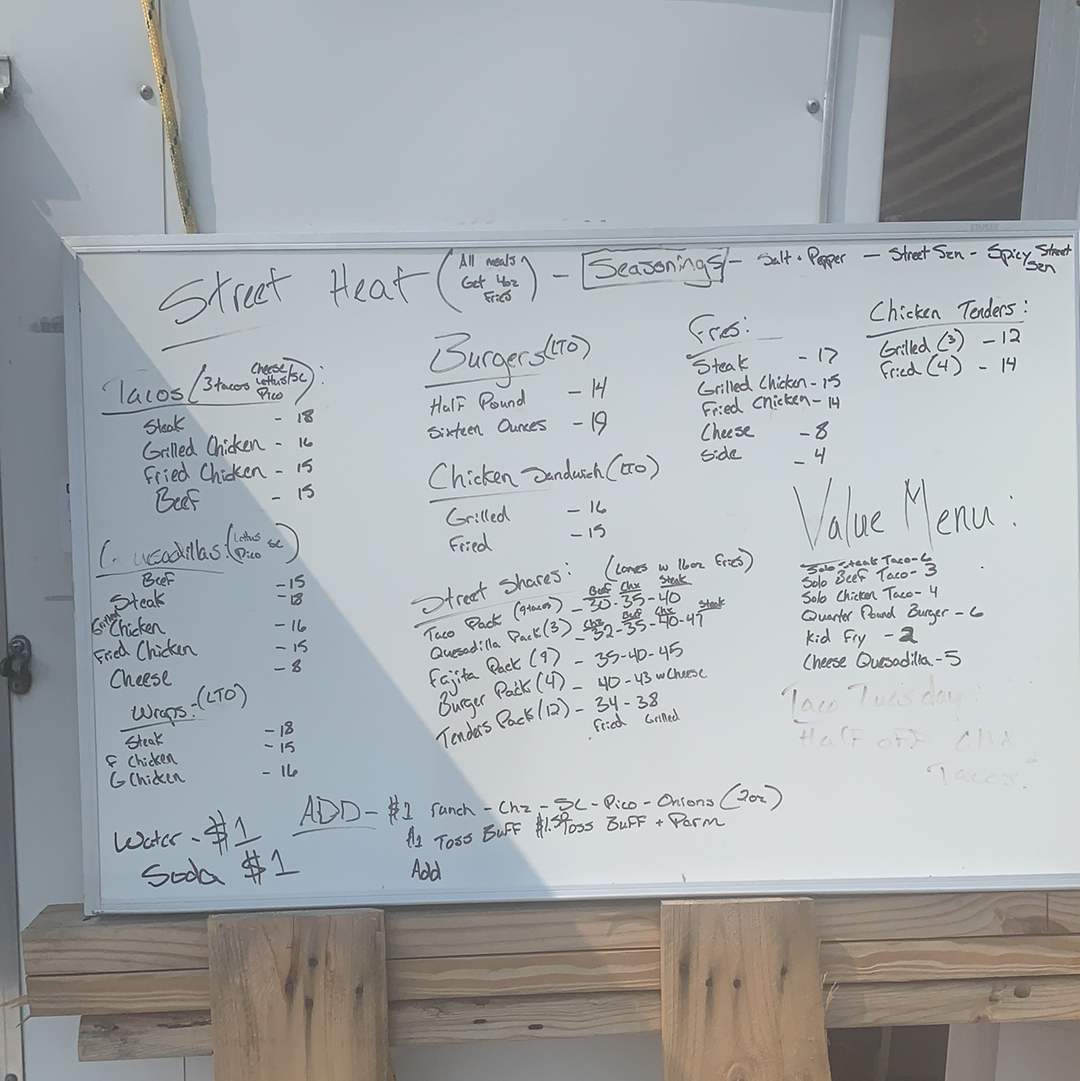 Street Heat (All meals Get 4oz Fries) - Seasonings - Salt + Pepper - Street Szn - Spicy Street Szn
Tacos (3 tacos Cheese/ Lettus/SC Pico):
Steak - 18
Grilled Chicken - 16
Fried Chicken - 15
Beef - 15
Quesadillas: (Lettus SC Pico)
Beef - 15
Steak - 18
Grilled Chicken - 16
Fried Chicken - 15
Cheese - 8
Wraps: (LTO)
Steak - 18
F Chicken - 15
G Chicken - 16
Water - $1
Soda $1
Burgers (LTO)
Half Pound - 14
Sixteen Ounces - 19
Chicken Sandwich (LTO)
Grilled - 16
Fried - 15
Street Shares: (Comes w 16oz Fries)
Beef Chx Steak
Taco Pack (9 tacos) - 30-35-40
Chz Beef Chx Steak
Quesadilla Pack (3) - 32-35-40-47
Fajita Pack (9) - 35-40-45
Burger Pack (4) - 40-43 w Cheese
Tenders Pack (12) - 34-38
Fried Grilled
ADD - $1 ranch - Chz - SC - Pico - Onions (2oz)
$1 Toss Buff $1.50 Toss Buff + Parm
Add
Fries:
Steak - 17
Grilled Chicken - 15
Fried Chicken - 14
Cheese - 8
Side - 4
Chicken Tenders:
Grilled (3) - 12
Fried (4) - 14
Value Menu:
Solo Steak Taco - 6
Solo Beef Taco - 3
Solo Chicken Taco - 4
Quarter Pound Burger - 6
Kid Fry - 2
Cheese Quesadilla - 5
Taco Tuesday:
Half off Chx
Tacos!